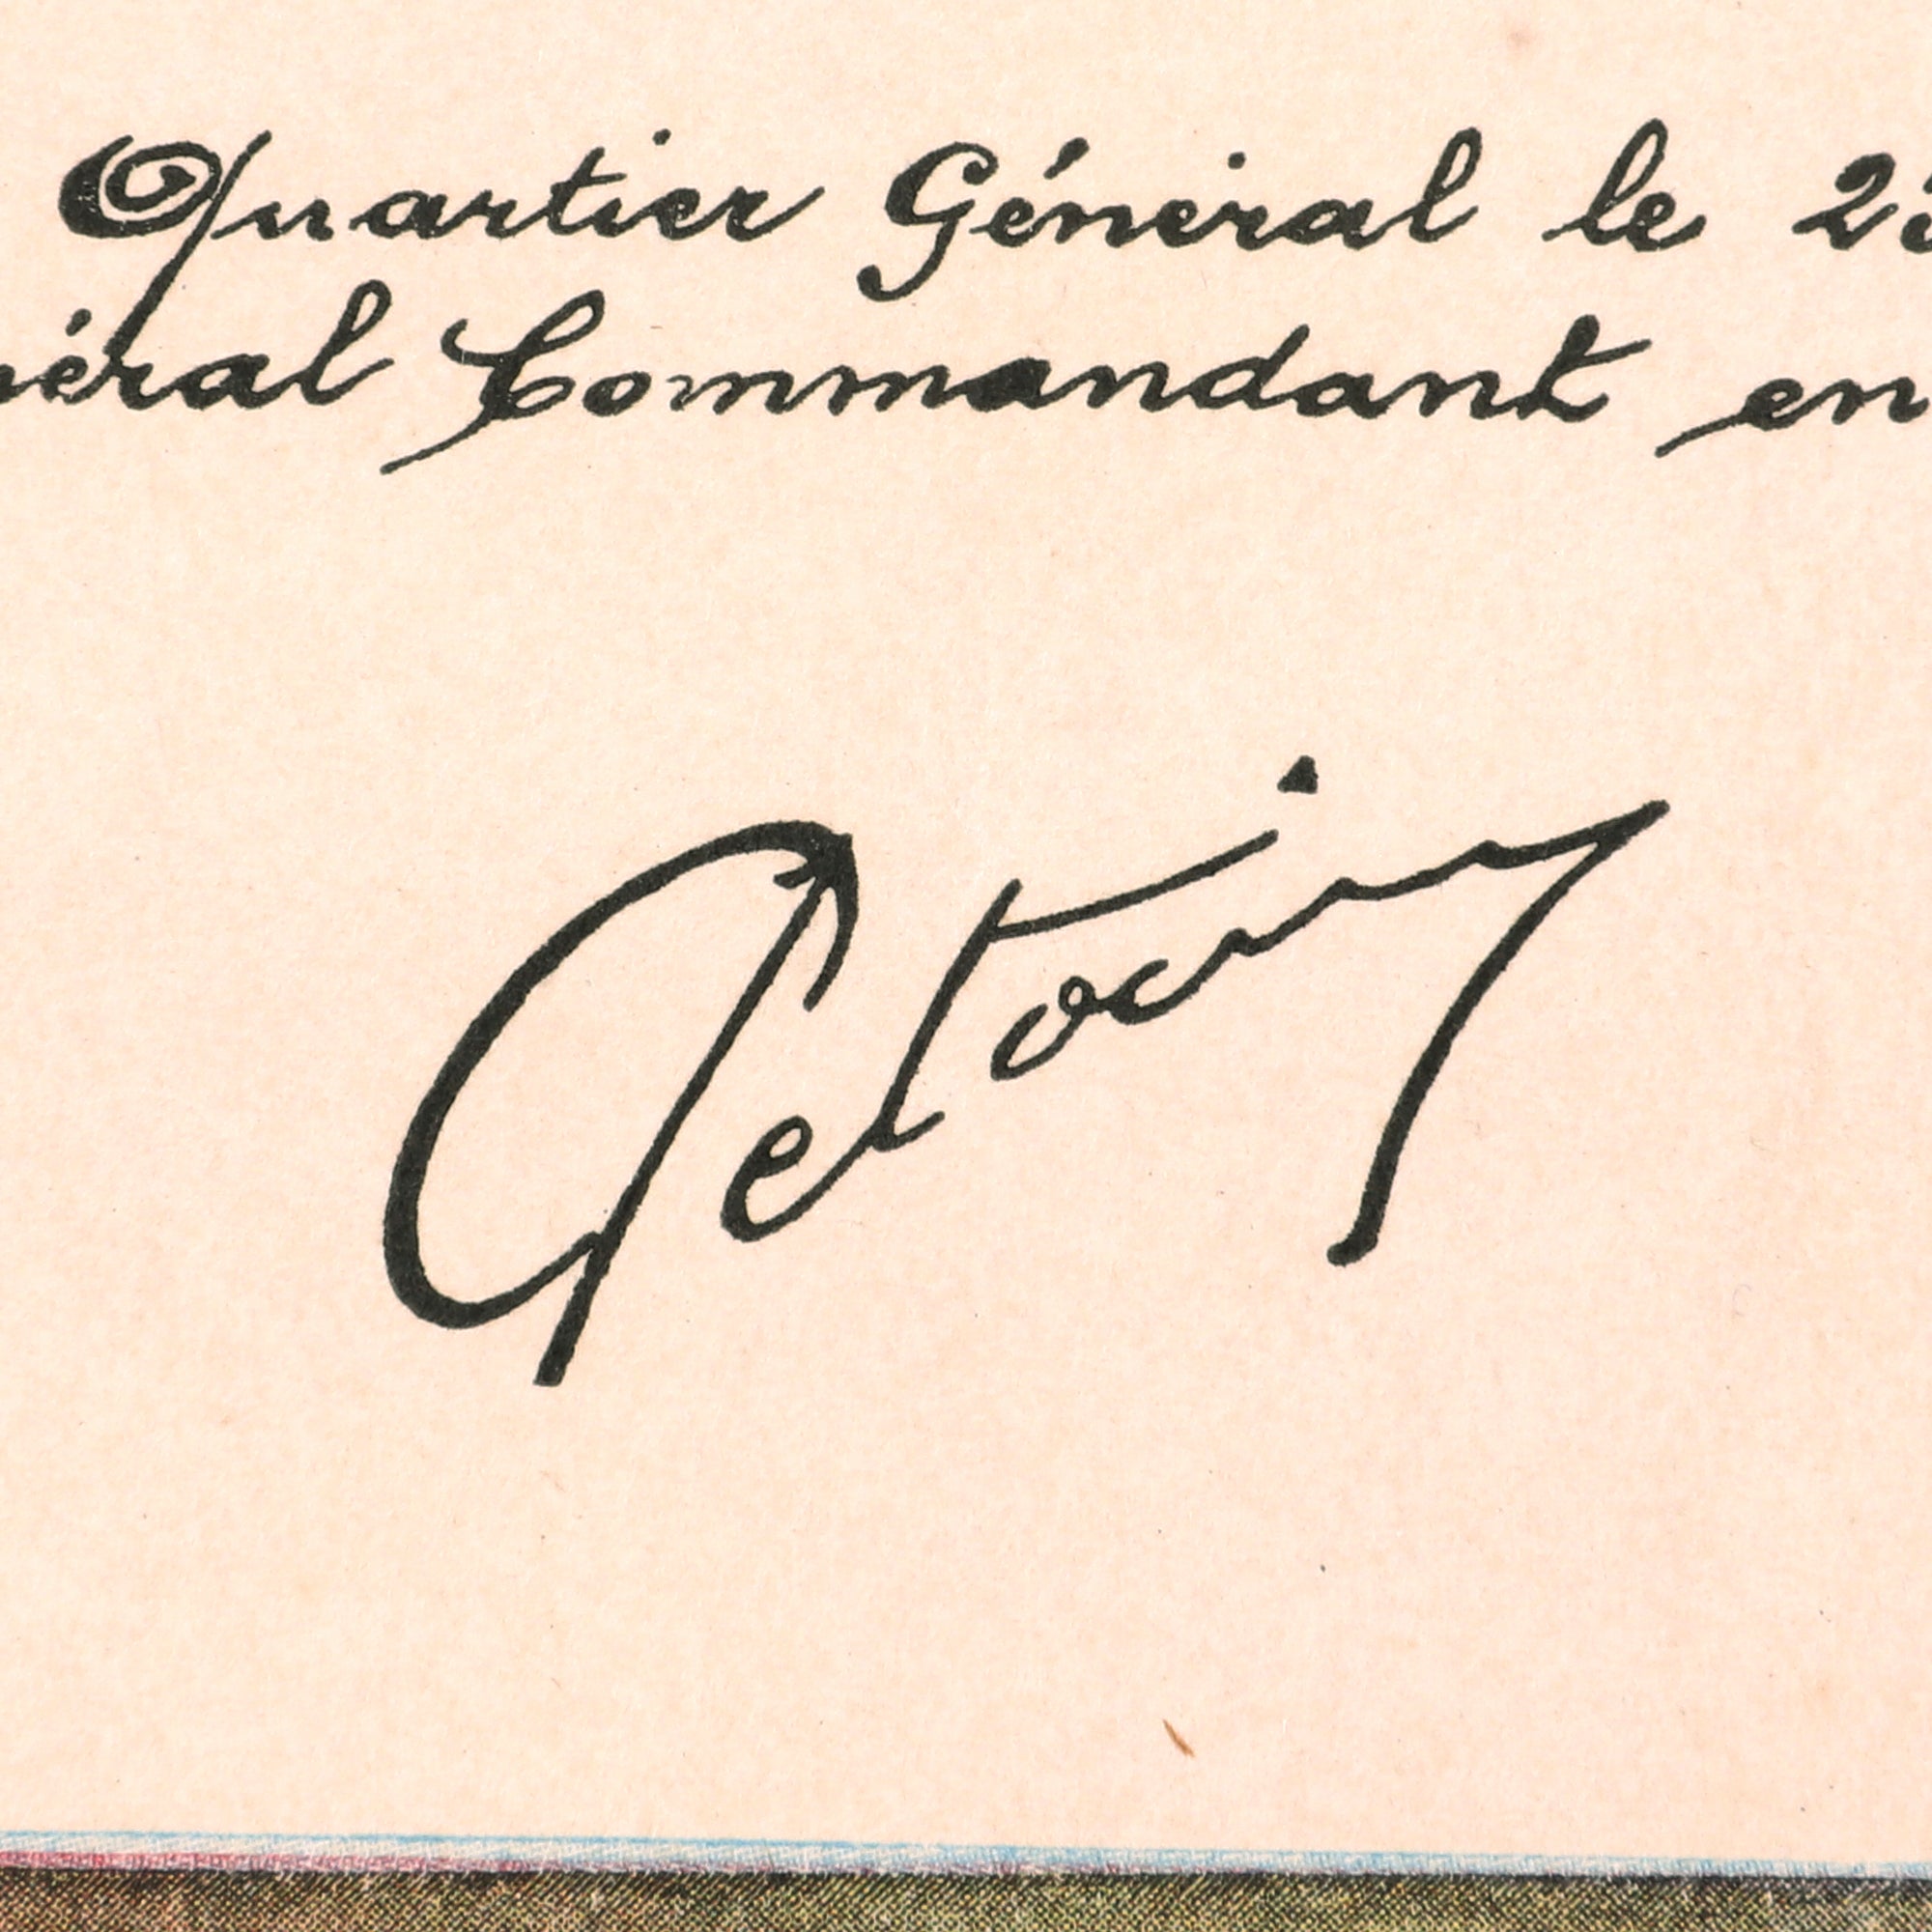 Quartier Général le 28
néral Commandant en
Petain